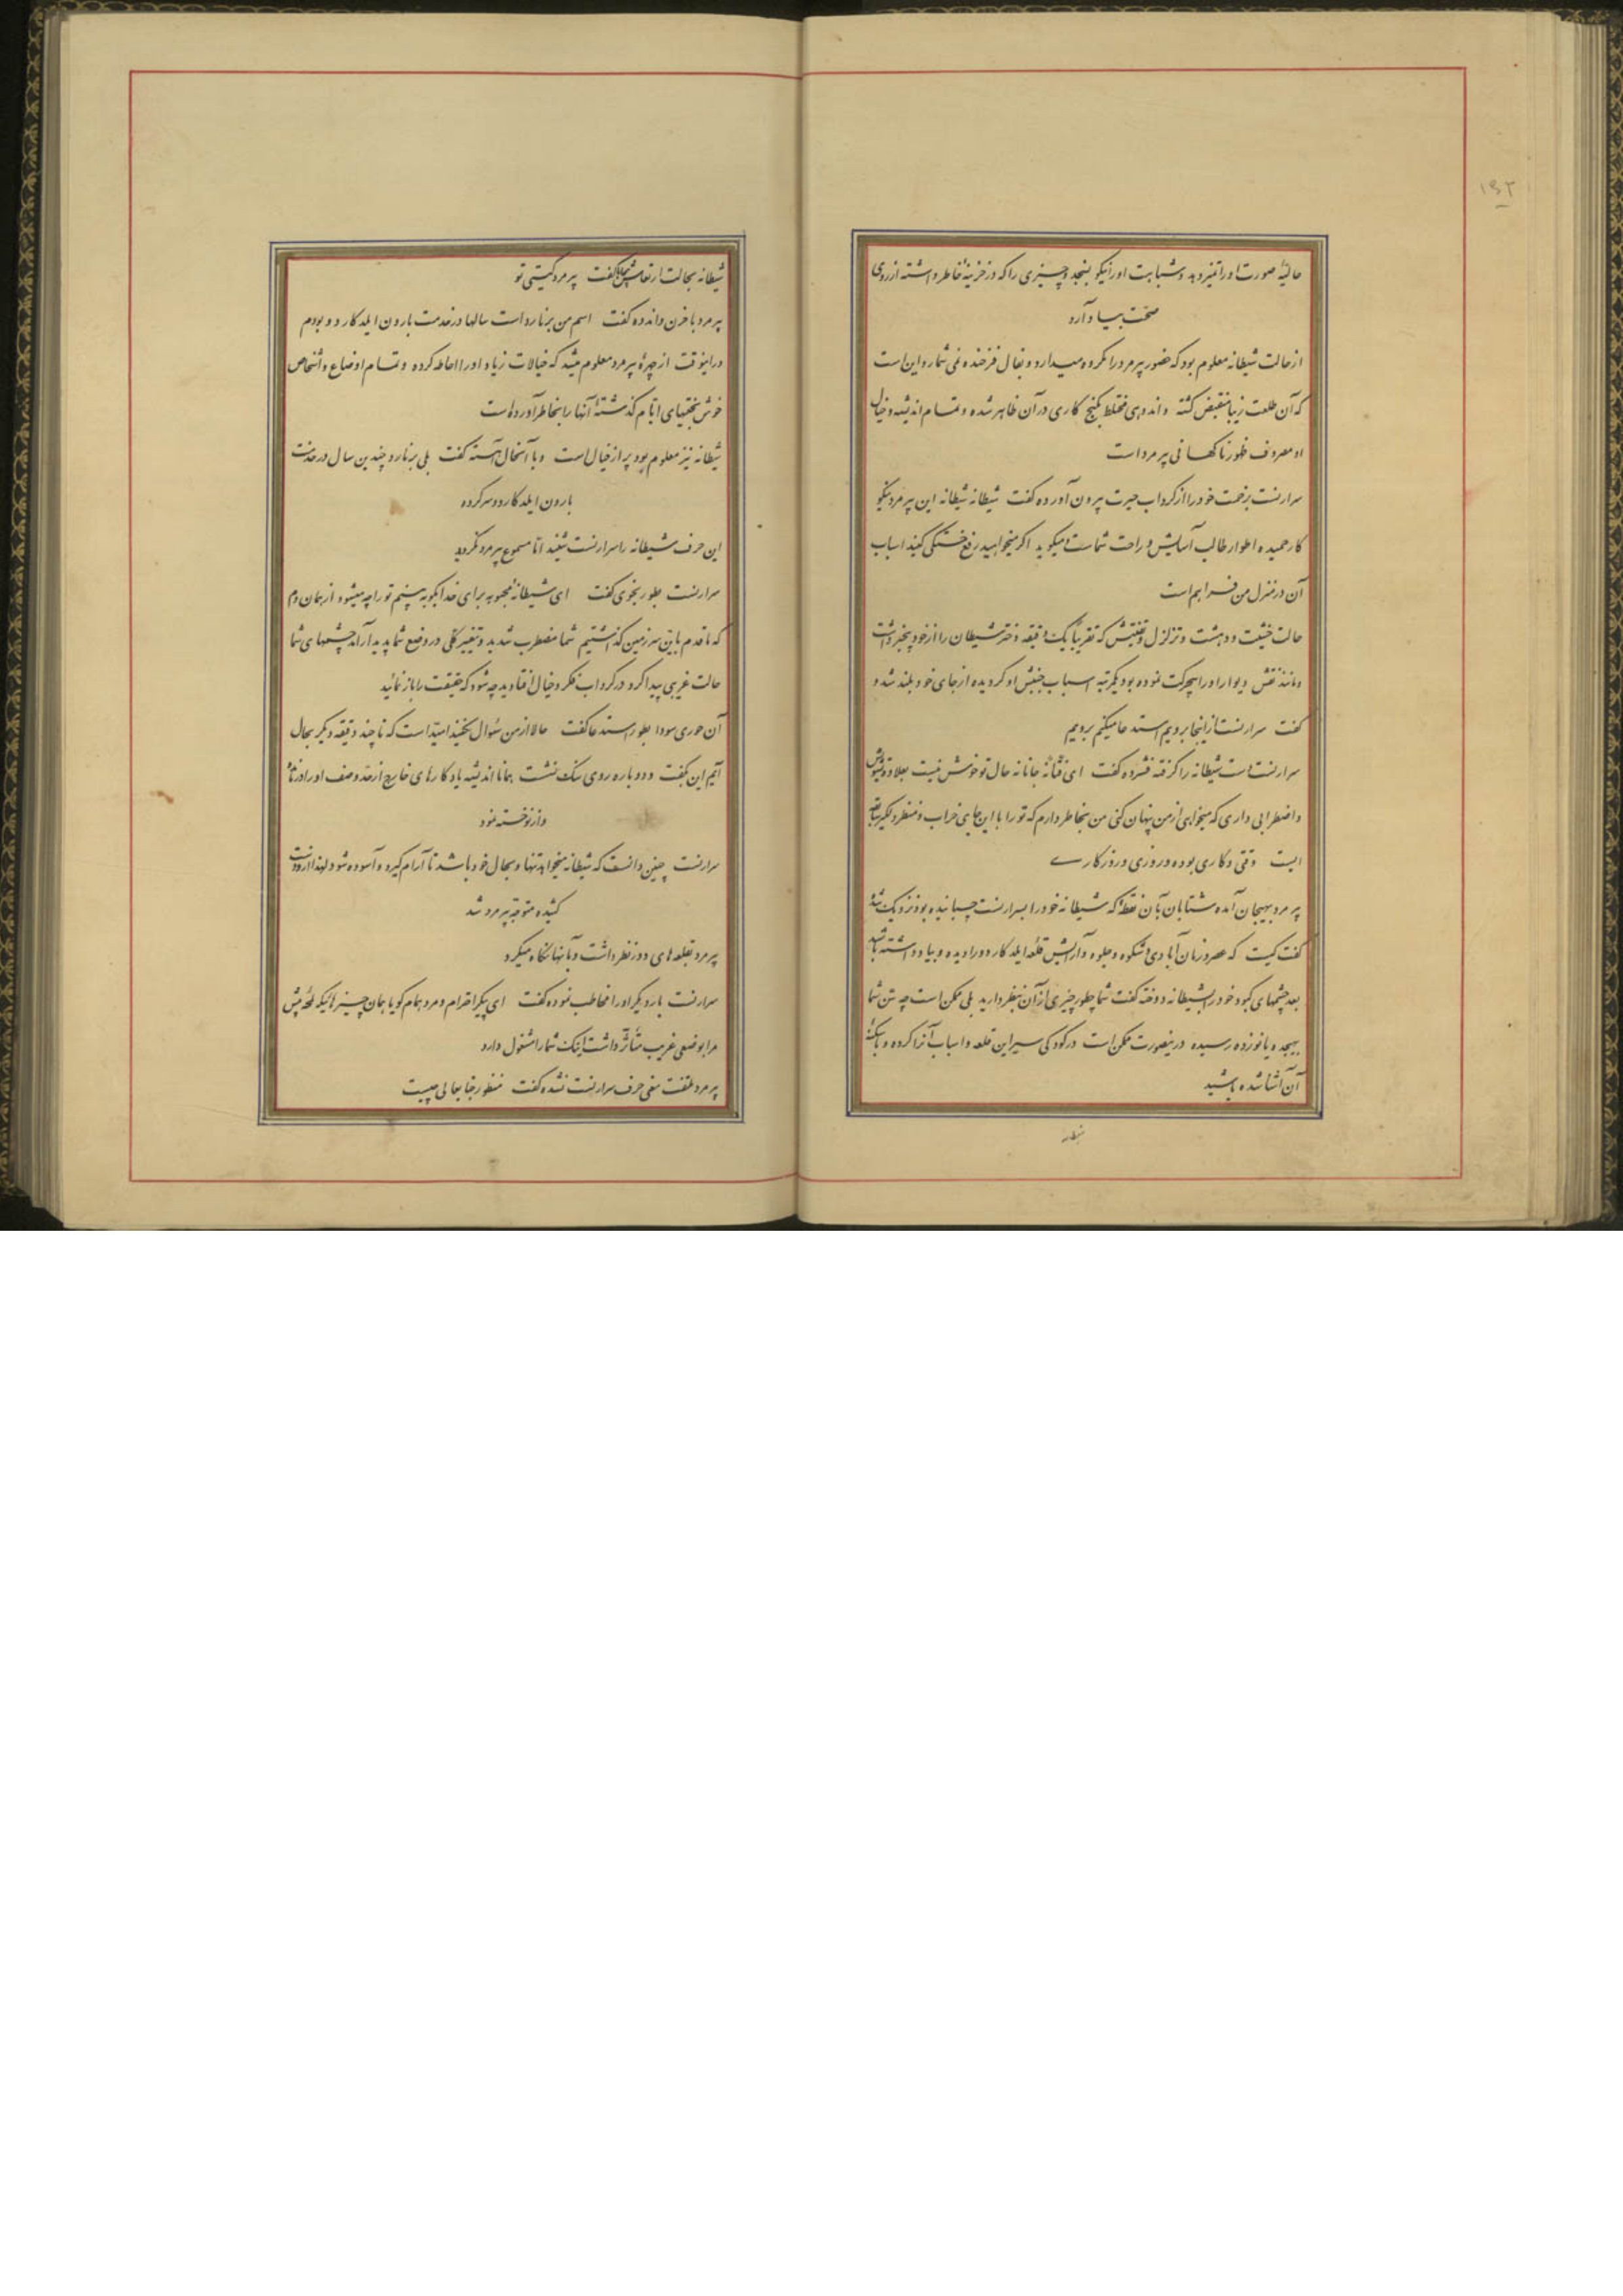 ۱۵۲
حالیهٔ صورت او را تمیز دهد و شباهت او را نیکو بسنجد و چیزی را که در خزینهٔ خاطر داشته از روی
صحّت بیاد آرد
از حالت شیطانه معلوم بود که حضور پیرمرد را مکروه میدارد و بفال فرخنده نمی شمارد این است
که آن طلعت زیبا منقبض گشته و اندوهی مختلط بکنج کاری در آن ظاهر شده و تمام اندیشه و خیال
او مصروف ظهور ناگهانی پیرمرد است
سرارنست بزحمت خود را از گرداب حیرت بیرون آورده گفت شیطانه شیطانه این پیرمرد نیکو
کار حمیده اطوار طالب آسایش و راحت شماست و میگوید اگر میخواهید رفع خستگی کنید اسباب
آن در منزل من فراهم است
حالت خشیت و دهشت و تزلزل و تفتیش که تقریباً یک دقیقه دختر شیطان را از خود بیخبر داشت
و مانند نقش دیوار او را بیحرکت نموده بود یکمرتبه اسباب جنبش او گردیده از جای خود بلند شد و
گفت سرارنست از اینجا برویم استدعا میکنم برویم
سرارنست دست شیطانه را گرفته فشرده گفت ای فتّانهٔ جانانه حال تو خوش نیست بعلاوه تشویش
و اضطرابی داری که میخواهی از من پنهان کنی من بخاطر دارم که تو را با این جای خراب و منظر دلگیر سابقه
ایست وقتی و کاری بوده و روزی و روزکارے
پیرمرد بهیجان آمده شتابان بآن نقطه که شیطانه خود را بسرارنست چسبانیده بود نزدیک شد
گفت کیست که عصر و زمان آبادی و شکوه و جلوه و آرایش قلعه ایلدکاردو را دیده و بیاد داشته باشد
بعد چشمهای کبود خود را بشیطانه دوخته گفت شما چطور چیزی از آن بنظر دارید بلی ممکن است چه سن شما
بهیجده یا نوزده رسیده در اینصورت ممکن است در کودکی سیر این قلعه و اسباب آنرا کرده و با سکنهٔ
آن آشنا شده باشید
شیطانه
شیطانه بحالت ارتعاش گفت پیرمرد کیستی تو
پیرمرد با حزن و اندوه گفت اسم من برنارد است سالها در خدمت بارون ایلدکاردو بودم
در اینوقت از چهرهٔ پیرمرد معلوم میشد که خیالات زیاد او را احاطه کرده و تمام اوضاع و اشخاص
خوش بختیهای ایّام گذشتهٔ آنها را بخاطر آورده است
شیطانه نیز معلوم بود پر از خیال است و با آنحال آهسته گفت بلی برنارد چندین سال در خدمت
بارون ایلدکاردو سر کرده
این حرف شیطانه را سرارنست شنید امّا مسموع پیرمرد نگردید
سرارنست بطور نجوی گفت ای شیطانهٔ محبوبه برای خدا بگو ببینم تو را چه میشود از همان دم
که ما قدم باین سرزمین گذاشتیم شما مضطرب شدید و تغییر کلّی در وضع شما پدید آرامد چشمهای شما
حالت غریبی پیدا کرد در گرداب فکر و خیال افتادید چه شود که حقیقت را باز نمائید
آن حوری سودا بطور استدعا گفت حالا از من سؤال نکنید امید است که تا چند دقیقه دیگر بحال
آیم این بگفت و دوباره روی سنگ نشست همانا اندیشه یادکارهای خارج از حدّ وصف او را از پا
و از نو خسته نمود
سرارنست چنین دانست که شیطانه میخواهد تنها و بحال خود باشد تا آرام گیرد و آسوده شود لهذا از او دست
کشیده متوجّه پیرمرد شد
پیرمرد بقلعه های دور نظر داشت و بآنها نگاه میکرد
سرارنست بار دیگر او را مخاطب نموده گفت ای پیکر احترام و مرد همام گویا همان چیزهائیکه لمحهٔ پیش
مرا بوضعی غریب متأثّر داشت اینک شما را مشغول دارد
پیرمرد ملتفت معنی حرف سرارنست نشده گفت منظور جنابعالی چیست